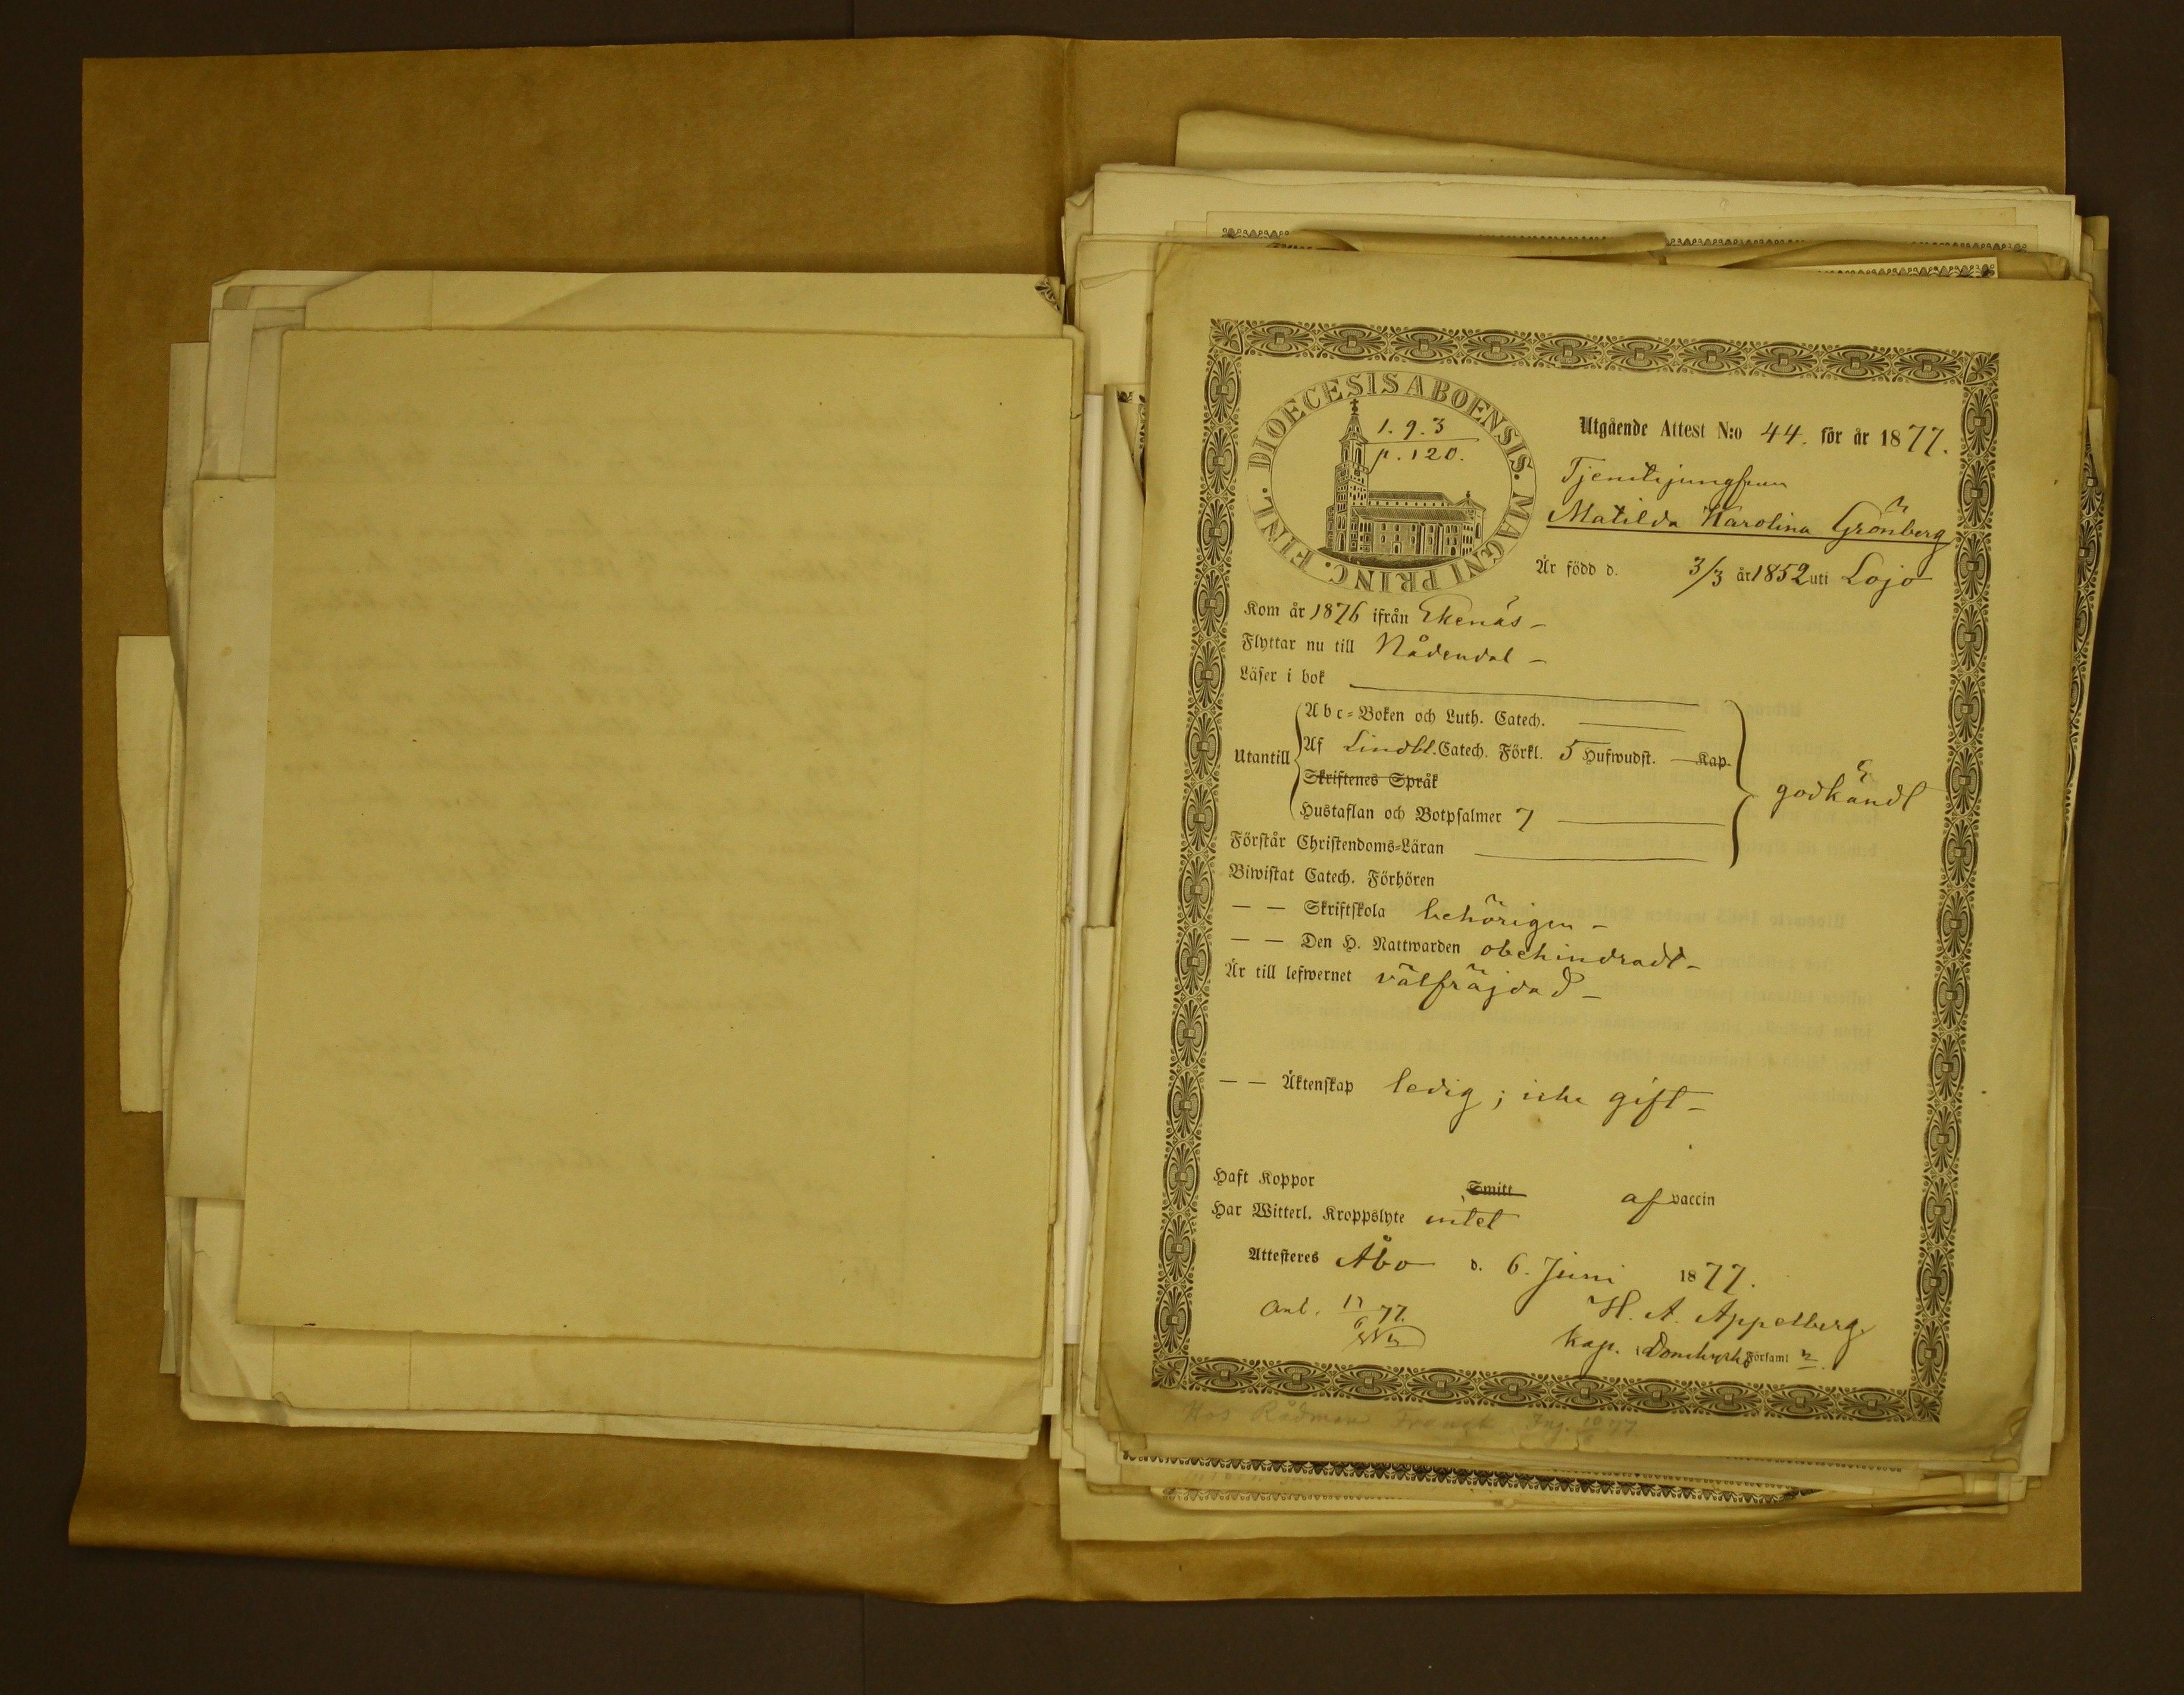 DIOECESIS ABOENSIS. MAGNI PRINC. FINL.
1.9.3
p. 120.
Utgående Attest N:o 44. för år 1877.
Tjenstejungfrun
Matilda Karolina Grönberg
Är född d. 3/3 år 1852 uti Lojo
Kom år 1876 ifrån Ekenäs –
Flyttar nu till Nådendal –
Läser i bok
Utantill
Abc-Boken och Luth. Catech.
Af Lindbl. Catech. Förkl. 5 Hufwudst. — Kap.
Skriftenes Språk
Hustaflan och Botpsalmer 7
godkändt
Förstår Christendoms-Läran
Biwistat Catech. Förhören
— — Skriftskola behörigen –
— — Den H. Nattwarden obehindradt –
Är till lefwernet välfräjdad –
— — Äktenskap ledig; icke gift –
Haft Koppor Smitt af vaccin
Har Witterl. Kroppslyte intet
Attesteres Åbo d. 6. Juni 1877.
Anl. 77.
H. A. Appelberg.
Kap. i Domkyrko Förſaml n.
Hos Rådman Franck Inj. 10/6 77